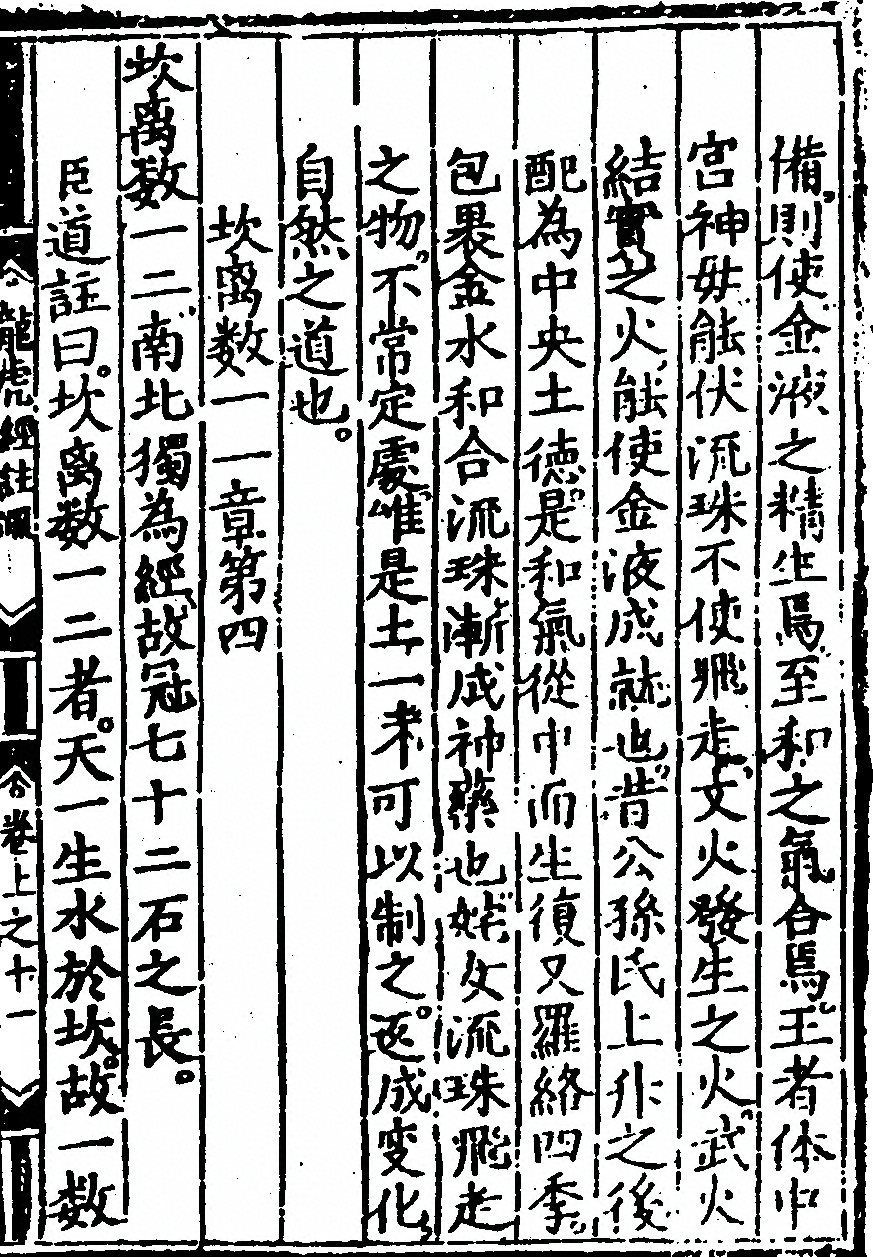 備則使金液之精生焉至和之氣合焉王者体中
宮神毋能伏流珠不使飛走文火發生之火武火
結實之火能使金液成就也昔公孫氏上升之後
配為中央土德是和氣從中而生復又羅絡四季
包裹金水和合流珠漸成神藥也姹女流珠飛走
之物不常定處惟是土一者可以制之返成変化
自然之道也。
坎离数一一章第四
坎离数一二南北獨為經故冠七十二石之長。
臣道註曰坎离数一二者。天一生水於坎故一数
龍虎經註
卷上之十一